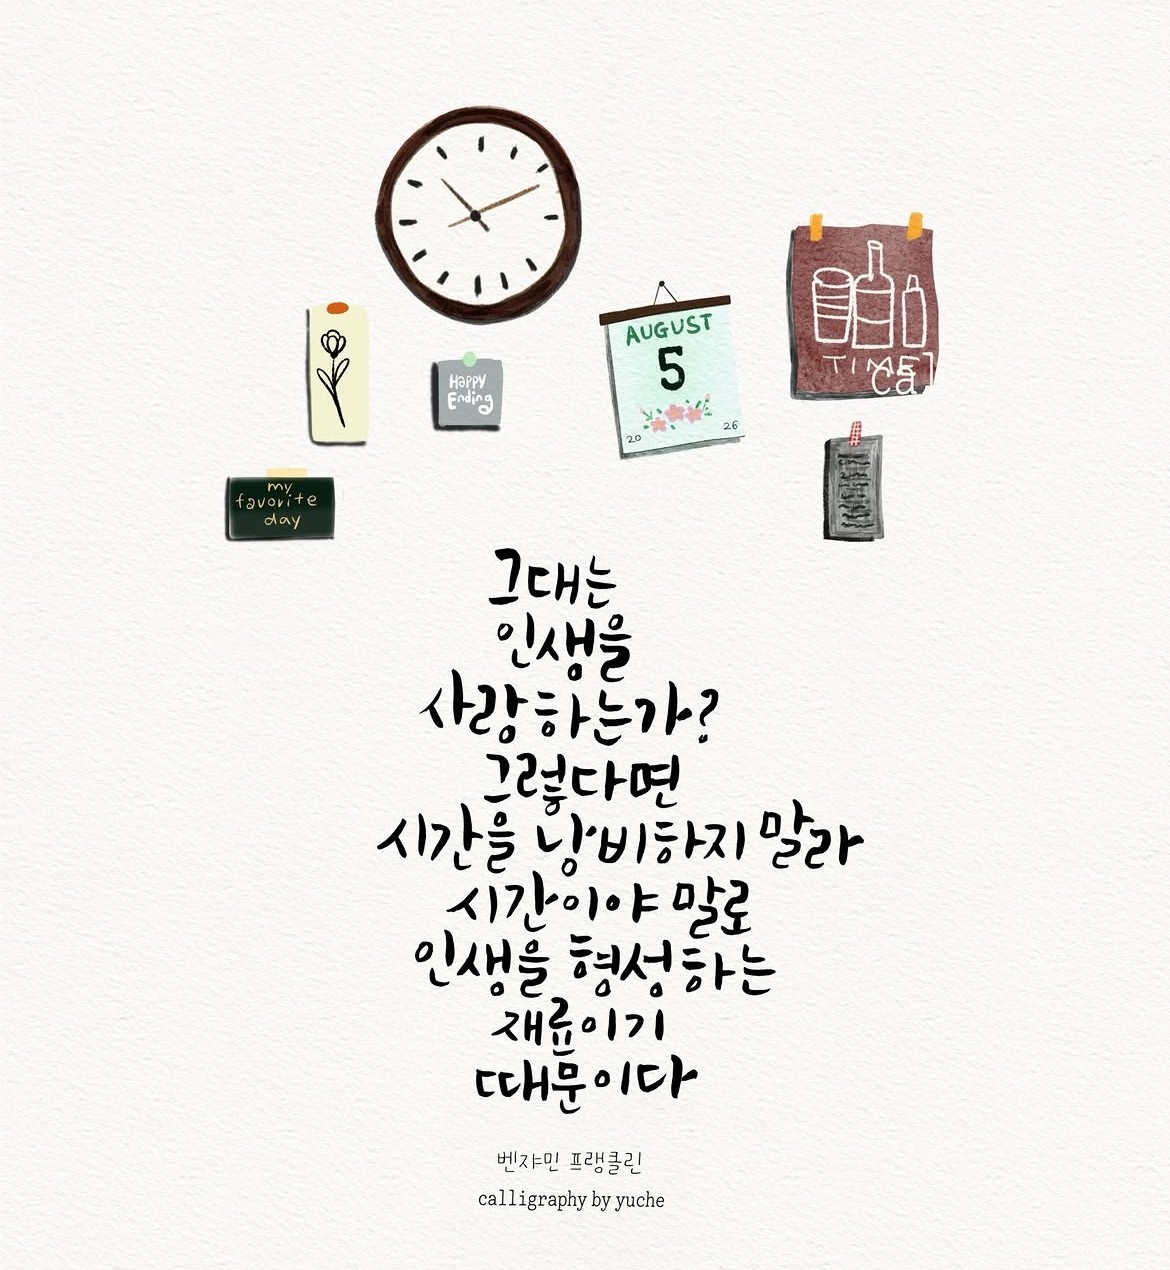 AUGUST
5
20 26
TIME
cal
Happy
Ending
my
favorite
day
그대는
인생을
사랑하는가?
그렇다면
시간을 낭비하지 말라
시간이야 말로
인생을 형성하는
재료이기
때문이다
벤쟈민 프랭클린
calligraphy by yuche